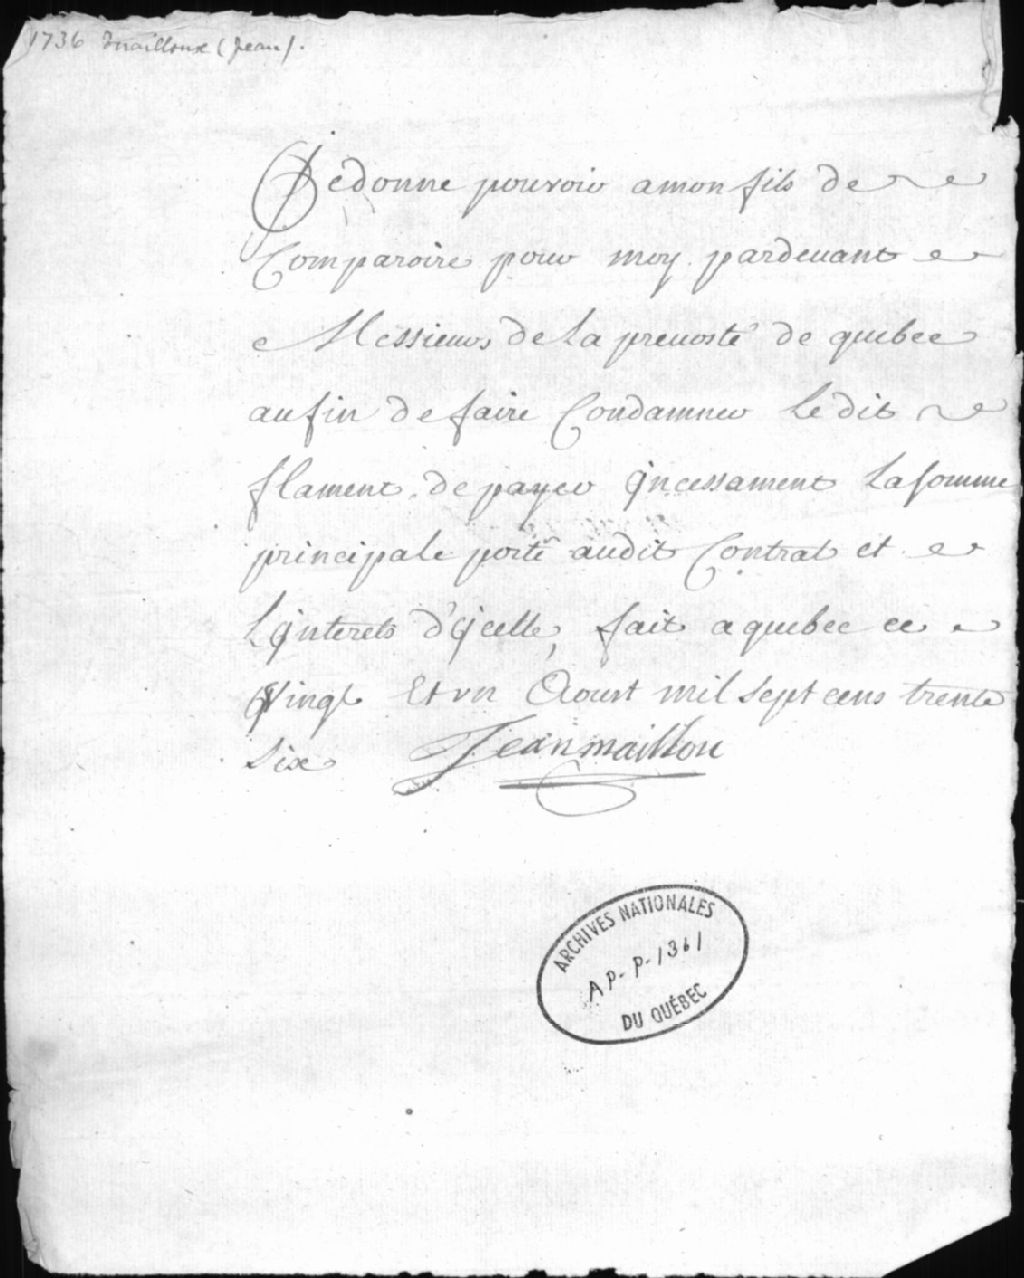 1736 Mailloux (Jean).
Je donne pouvoir a mon fils de
Comparoire pour moy pardevant
Messieurs de la prevosté de quebec
aufin de faire Condamner Ledit
flament de payer incessament La somme
principale porté audit Contrat et
L'interets d'icelle, fait a quebec ce
vingt Et un Aoust mil sept cens trente
Six Jean maillou
ARCHIVES NATIONALES
AP-P-1361
DU QUÉBEC